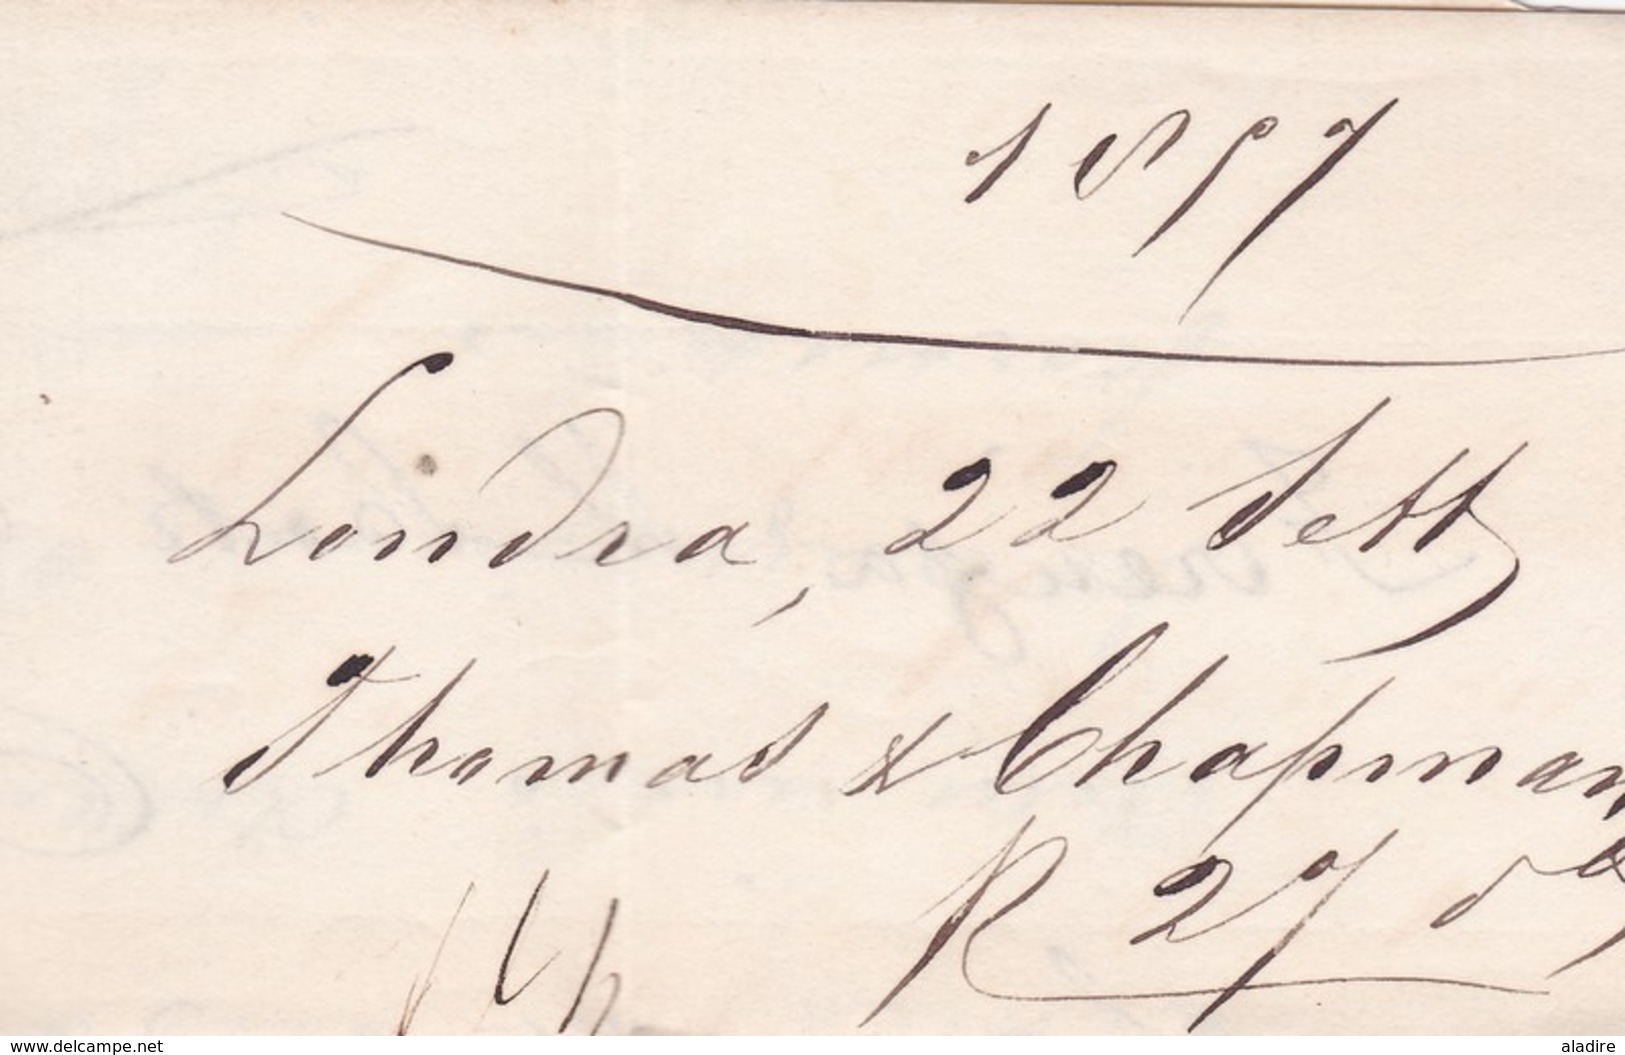 1857
Londra, 22 Sett
Thomas & Chapman
R 27 do
www.delcampe.net
aladire